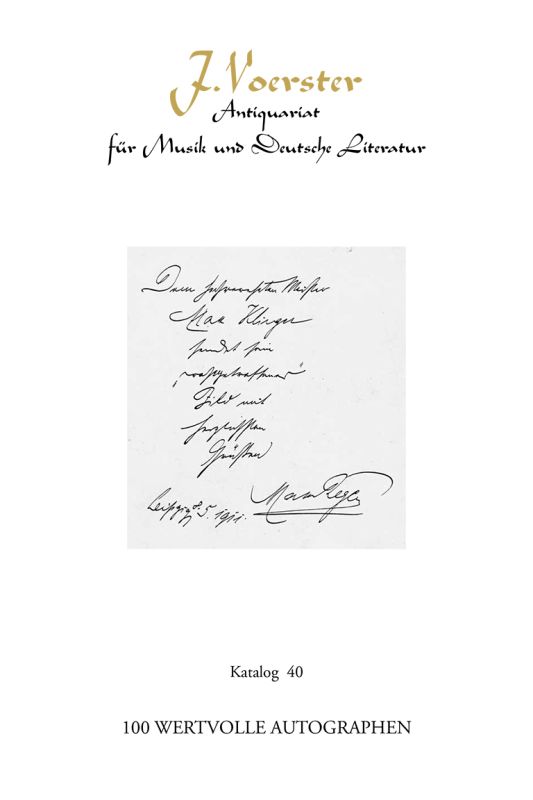 J. Voerster
Antiquariat
für Musik und Deutsche Literatur
Dem hochverehrten Meister
Max Klinger
sendet sein
Bild mit
herzlichsten
Grüßen
Max Reger
Leipzig 8. 5. 1911.
Katalog 40
100 WERTVOLLE AUTOGRAPHEN